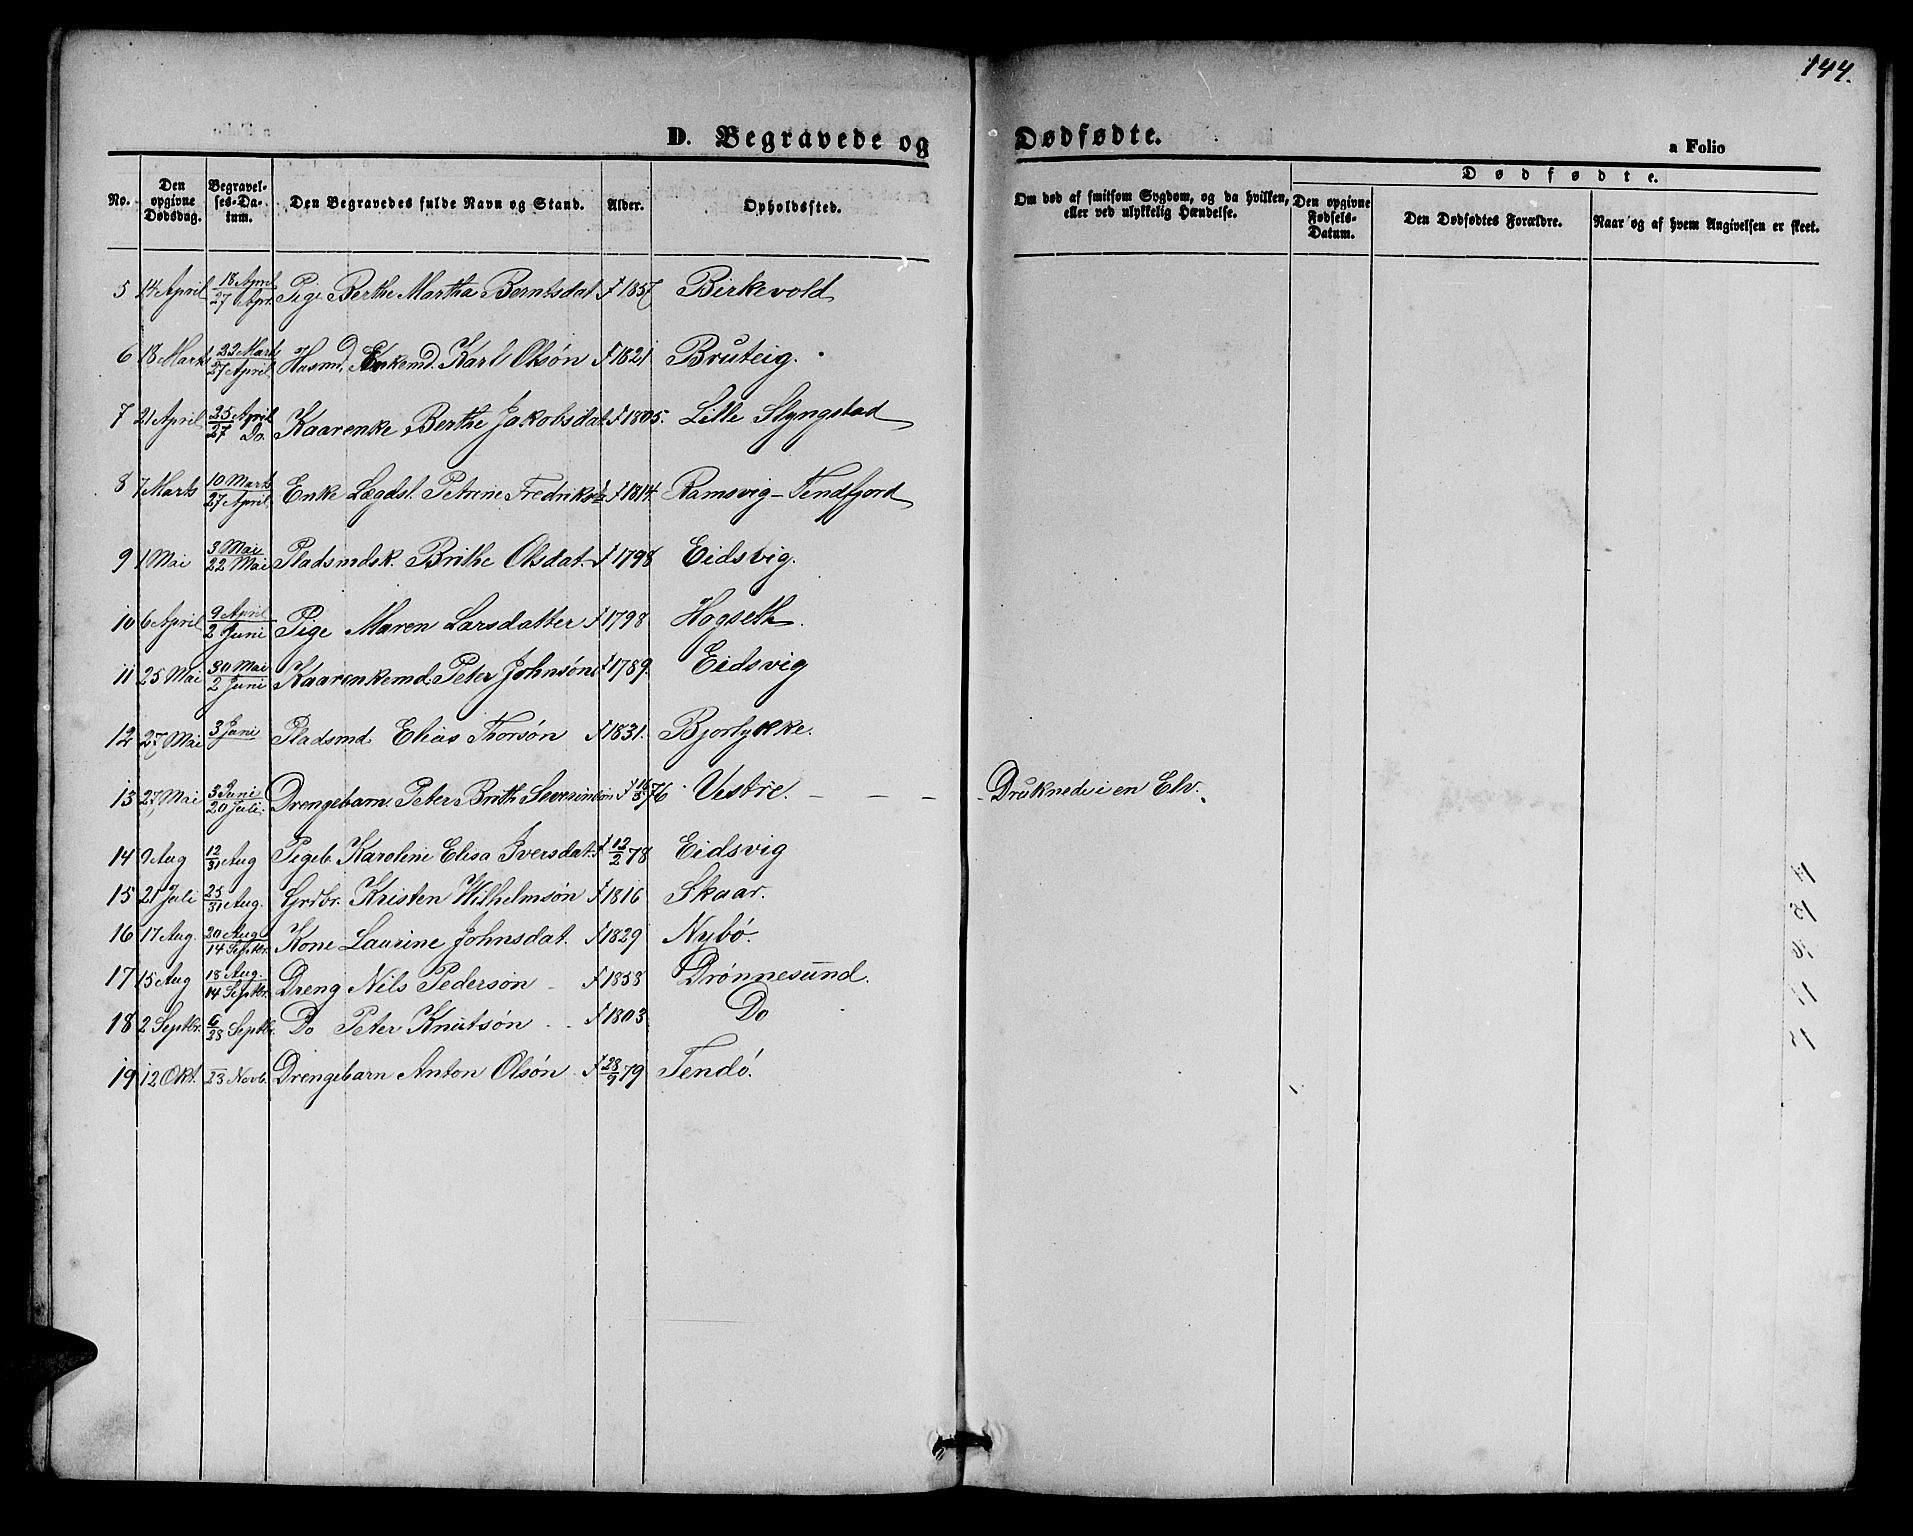 144.
D. Begravede og Dødfødte.
a Folio
No. Den opgivne Dødsdag. Begravelses-Datum. Den Begravedes fulde Navn og Stand. Alder. Opholdssted. Om død af smitsom Sygdom, og da hvilken, eller ved ulykkelig Hændelse. Dødfødte. Den opgivne Fødsels-Datum. Den Dødfødtes Forældre. Naar og af hvem Angivelsen er skeet.
5 14 April 18 April 27 Apr. Pige Berthe Martha Berntsdat. f 1857 Birkevold
6 18 Marts 22 Mart 27 April Husmd, Enkemd. Karl Olsøn f 1821 Bruteig.
7 21 April 25 April 27 Do. Kaarenke Berthe Jakobsdat f 1805. Lille Slyngstad
8 7 Marts 10 Marts 27 April Enke Lægdsl. Petrine Fredriksd f 1814. Ramsvig-Tendfjord
9 1 Mai 3 Mai 22 Mai Pladsmdsk. Brithe Olsdat. f 1798 Eidsvig.
10 6 April 9 April 2 Juni Pige Maren Larsdatter f 1798 Hogseth.
11 25 Mai 30 Mai 2 Juni Kaarenkemd Peter Johnsøn f 1789. Eidsvig
12 27 Mai 3 Juni Pladsmd Elias Thorsøn f 1831. Bjorlykke.
13 27 Mai 3 Juni 20 Juli Drengebarn Peter Brith Severinsøn f 16/3 76 Vestre. - - - Druknede i en Elv.
14 9 Aug 12/31 Aug Pigeb. Karoline Elisa Iversdat. f 12/2 78 Eidsvig
15 21 Juli 25/31 Aug. Grdbr. Kristen Wilhelmsøn f 1816 Skaar.
16 17 Aug. 20 Aug 14 Septbr. Kone Laurine Johnsdat. f 1829 Nybø.
17 15 Aug 18 Aug. 14 Septbr. Dreng Nils Pedersøn - f 1858 Drønnesund.
18 2 Septbr. 6/28 Septbr. Do Peter Knutsøn - f 1803 Do
19 12 Okt. 23 Novb. Drengebarn Anton Olsøn. f 28/9 79 Tendø.